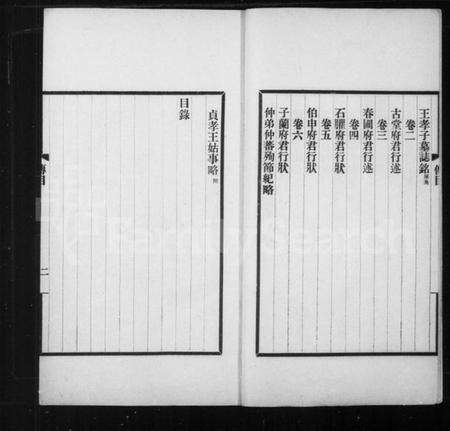 王孝子墓誌銘
卷二
古堂府君行述
卷三
春圃府君行述
卷四
石臞府君行狀
卷五
伯申府君行狀
卷六
子蘭府君行狀
仲弟仲蕃殉節紀略
貞孝王姑事略 附
目錄
二
FamilySearch